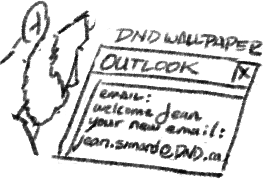 DND WALLPAPER
OUTLOOK
X
email:
welcome Jean
your new email:
jean.simard@DND.ca